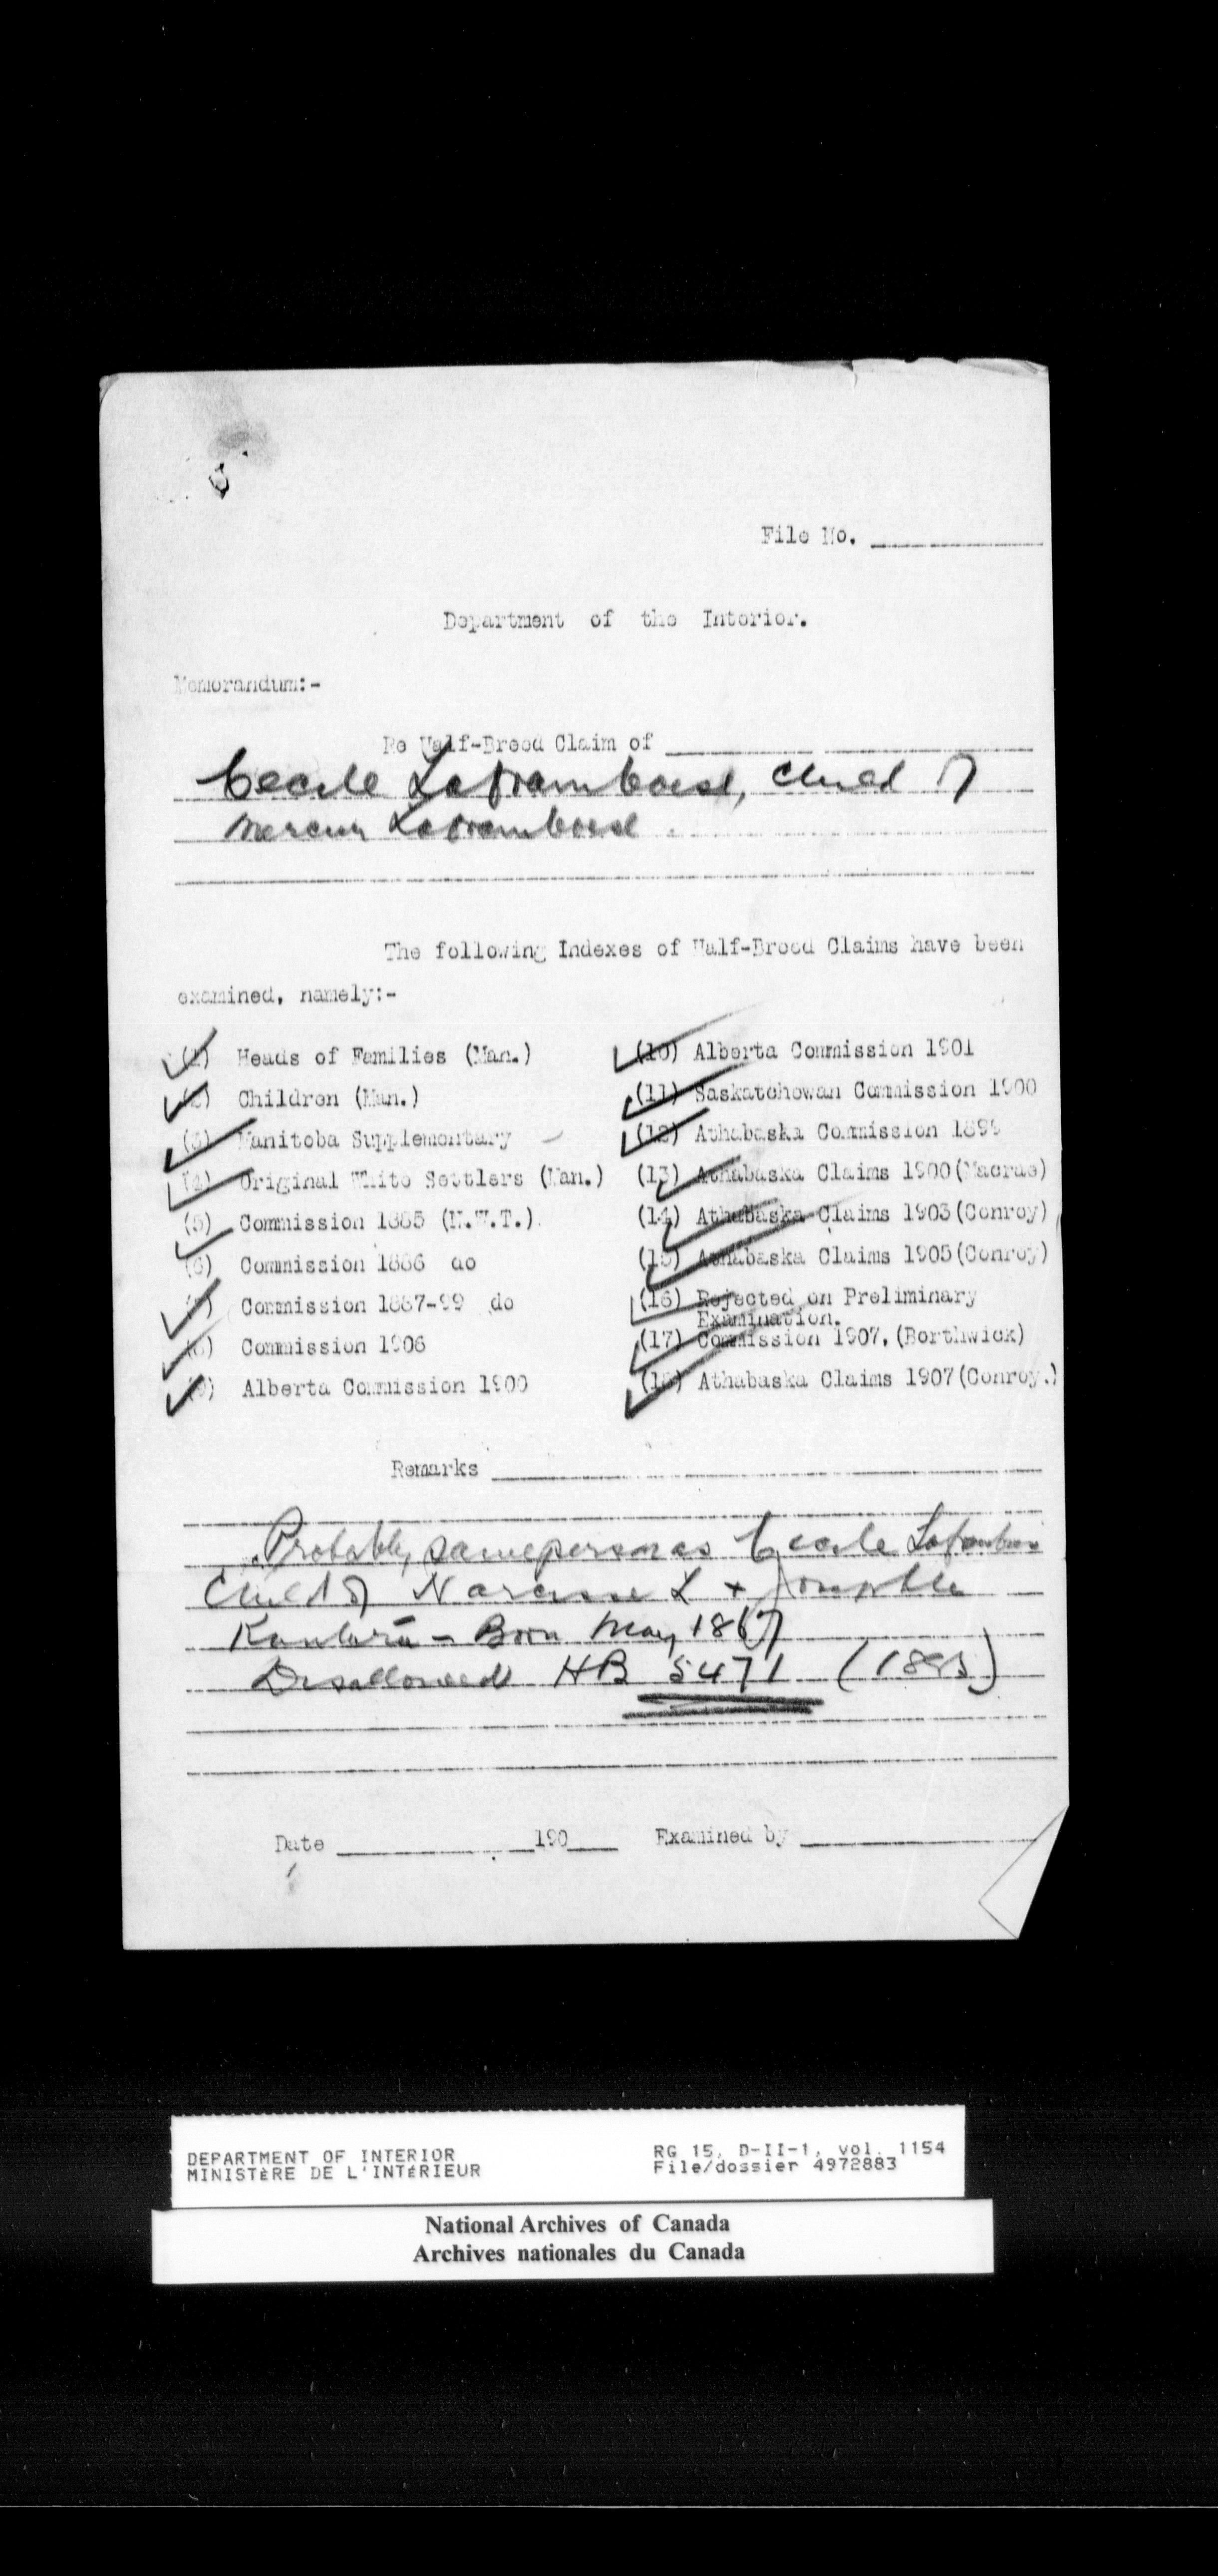 File No.
Department of the Interior.
Memorandum:-
Re Half-Breed Claim of
Cecile Laframboise, Child of
Laframboise
The following Indexes of Half-Breed Claims have been
examined, namely:-
(1) Heads of Families (Man.)
(2) Children (Man.)
(3) Manitoba Supplementary
(4) Original White Settlers (Man.)
(5) Commission 1885 (N.W.T.)
(6) Commission 1886 do
(7) Commission 1887-99 do
(8) Commission 1906
(9) Alberta Commission 1900
(10) Alberta Commission 1901
(11) Saskatchewan Commission 1900
(12) Athabaska Commission 1899
(13) Athabaska Claims 1900 (Macrae)
(14) Athabaska Claims 1903 (Conroy)
(15) Athabaska Claims 1905 (Conroy)
(16) Rejected on Preliminary
Examination.
(17) Commission 1907, (Borthwick)
(18) Athabaska Claims 1907 (Conroy.)
Remarks
Probably same person as Cecile Laframboise
Child of Narcisse L +
Born May 1867
Disallowed HB 5471
Date 190 Examined by
DEPARTMENT OF INTERIOR
MINISTÈRE DE L'INTÉRIEUR
RG 15, D-II-1, vol. 1154
File/dossier 4972883
National Archives of Canada
Archives nationales du Canada